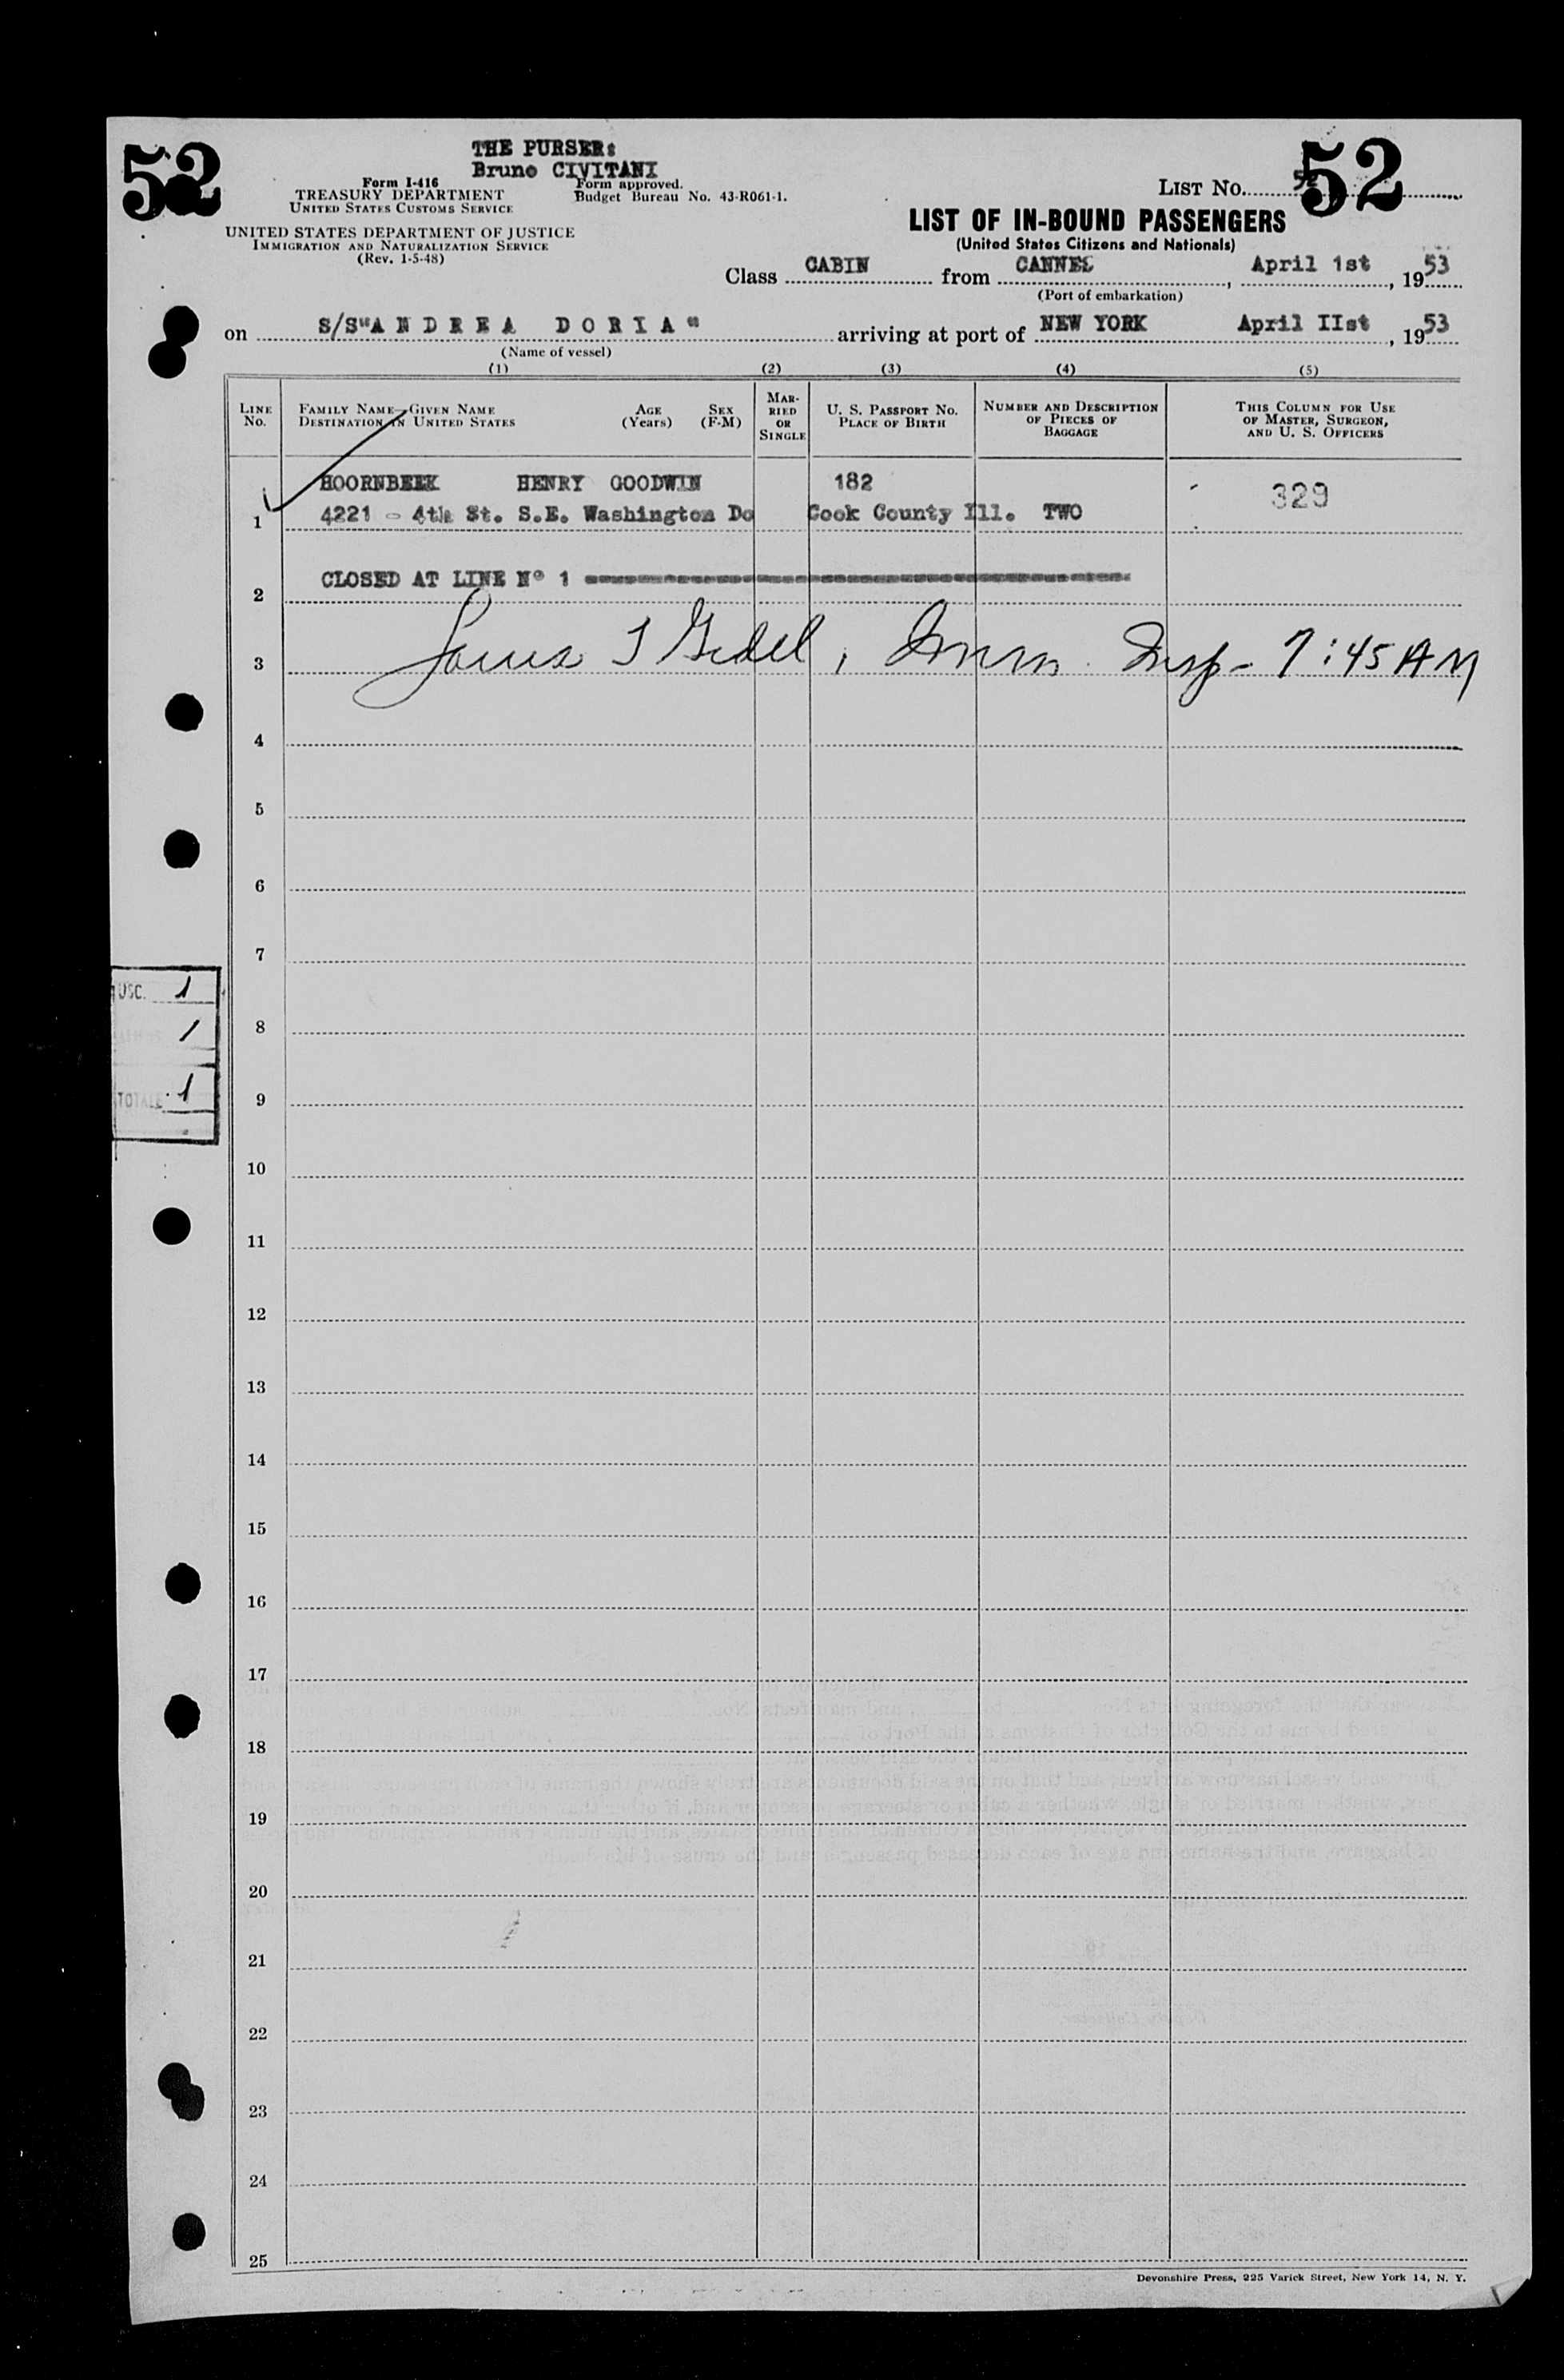 52
THE PURSER:
Bruno CIVITANI
Form I-416
TREASURY DEPARTMENT
UNITED STATES CUSTOMS SERVICE
Form approved.
Budget Bureau No. 43-R061-1.
UNITED STATES DEPARTMENT OF JUSTICE
IMMIGRATION AND NATURALIZATION SERVICE
(Rev. 1-5-48)
LIST No. 52
52
LIST OF IN-BOUND PASSENGERS
(United States Citizens and Nationals)
Class CABIN from CANNES, April 1st, 1953
(Port of embarkation)
on S/S"ANDREA DORIA" arriving at port of NEW YORK April IIst, 1953
(Name of vessel)
(1) (2) (3) (4) (5)
LINE No.
FAMILY NAME—GIVEN NAME
DESTINATION IN UNITED STATES
AGE (Years)
SEX (F-M)
MARRIED OR SINGLE
U. S. PASSPORT NO.
PLACE OF BIRTH
NUMBER AND DESCRIPTION
OF PIECES OF
BAGGAGE
THIS COLUMN FOR USE
OF MASTER, SURGEON,
AND U. S. OFFICERS
HOORNBEEK HENRY GOODWIN 182 329
1 4221 - 4th St. S.E. Washington Dc Cook County Ill. TWO
CLOSED AT LINE Nº 1
2
3 Louis I Gedel, Immn. Insp- 7:45 AM
4
5
6
7
USC. 1
8
1
9
TOTALE 1
10
11
12
13
14
15
16
17
18
19
20
21
22
23
24
25
Devonshire Press, 225 Varick Street, New York 14, N. Y.